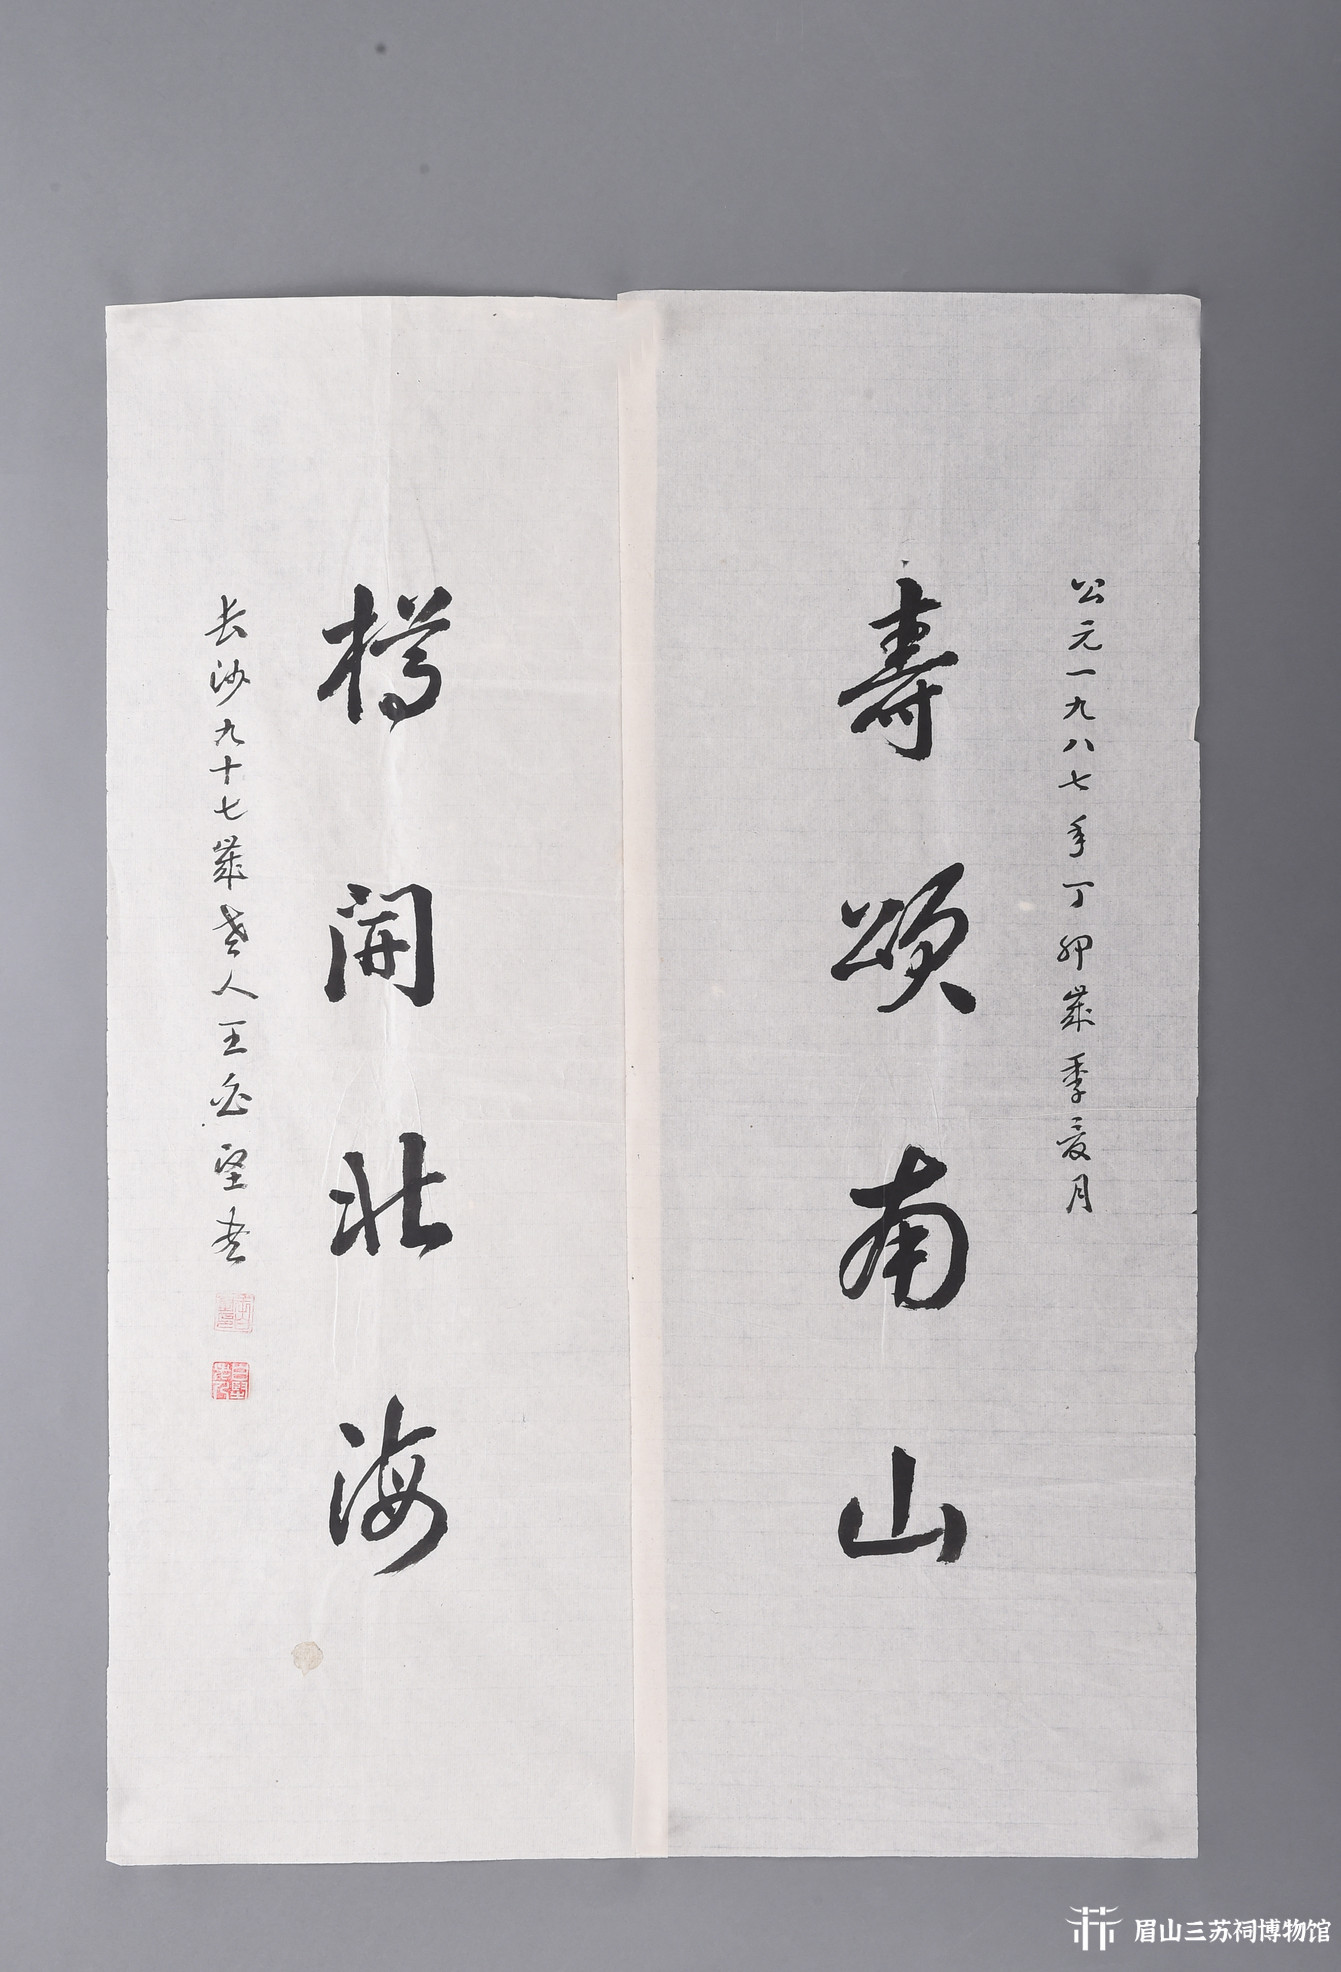 公元一九八七年丁卯歲季夏月
壽頌南山
樽開北海
长沙九十七歲老人王必堅书
眉山三苏祠博物馆